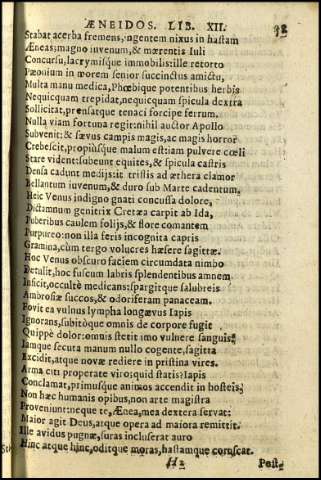 ÆNEIDOS. LIB. XII.
Stabat acerba fremens, ingentem nixus in hastam
Æneas; magno iuvenum, & mœrentis Iuli
Concursu, lacrymisque immobilis: ille retorto
Pæonium in morem senior succinctus amictu,
Multa manu medica, Phœbique potentibus herbis
Nequicquam trepidat, nequicquam spicula dextra
Sollicitat, prensatque tenaci forcipe ferrum.
Nulla viam fortuna regit: nihil auctor Apollo
Subvenit: & sævus campis magis, ac magis horror
Crebescit, propiusque malum est: iam pulvere cœli
Stare vident: subeunt equites, & spicula castris
Densa cadunt medijs: it tristis ad æthera clamor
Bellantum iuvenum, & duro sub Marte cadentum,
Heic Venus indigno gnati concussa dolore,
Dictamnum genitrix Cretæa carpit ab Ida,
Puberibus caulem folijs, & flore comantem
Purpureo: non illa feris incognita capris
Gramina, cùm tergo volucres hæsere sagittæ.
Hoc Venus obscuro faciem circumdata nimbo
Detulit, hoc fuscum labris splendentibus amnem
Inficit, occultè medicans: spargitque salubreis
Ambrosiæ succos, & odoriferam panaceam.
Fovit ea vulnus lympha longævus Iapis
Ignorans, subitòque omnis de corpore fugit
Quippè dolor: omnis stetit imo vulnere sanguis,
Iamque secuta manum nullo cogente, sagitta
Excidit, atque novæ rediere in pristina vires.
Arma citi properate viro; quid statis? Iapis
Conclamat, primusque animos accendit in hosteis,
Non hæc humanis opibus, non arte magistra
Proveniunt: neque te, Ænea, mea dextera servat:
Maior agit Deus, atque opera ad maiora remittit.
Ille avidus pugnæ, suras incluserat auro
Hinc atque hinc, oditque moras, hastamque coruscat.
Post